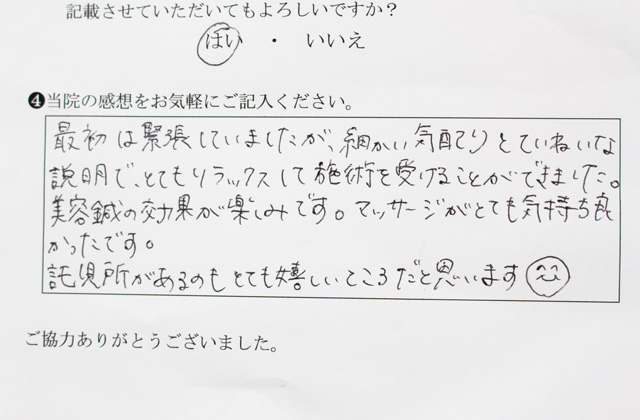 記載させていただいてもよろしいですか？
はい ・ いいえ
❹当院の感想をお気軽にご記入ください。
最初は緊張していましたが、細かい気配りとていねいな
説明で、とてもリラックスして施術を受けることができました。
美容鍼の効果が楽しみです。マッサージがとても気持ち良
かったです。
託児所があるのもとても嬉しいところだと思います
ご協力ありがとうございました。